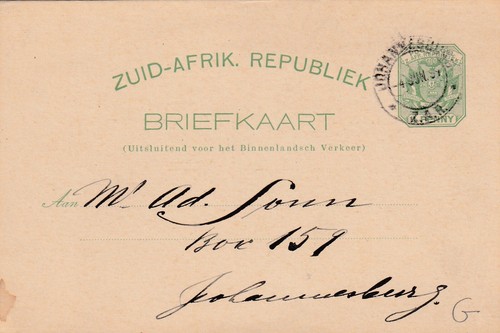 ZUID-AFRIK. REPUBLIEK
JOHANNESBURG
4 JUN. 97
Z.A.R.
PENNY
BRIEFKAART
(Uitsluitend voor het Binnenlandsch Verkeer)
Aan Mr Ad. Sonn
Box 159
Johannesburg.
G